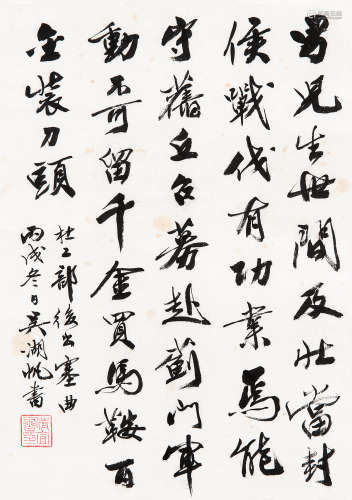 男兒生世間及壯當封
侯戰伐有功業焉能
守舊丘召募赴薊門軍
動不可留千金買馬鞍百
金裝刀頭
杜工部後出塞曲
丙戌冬日吳湖帆書